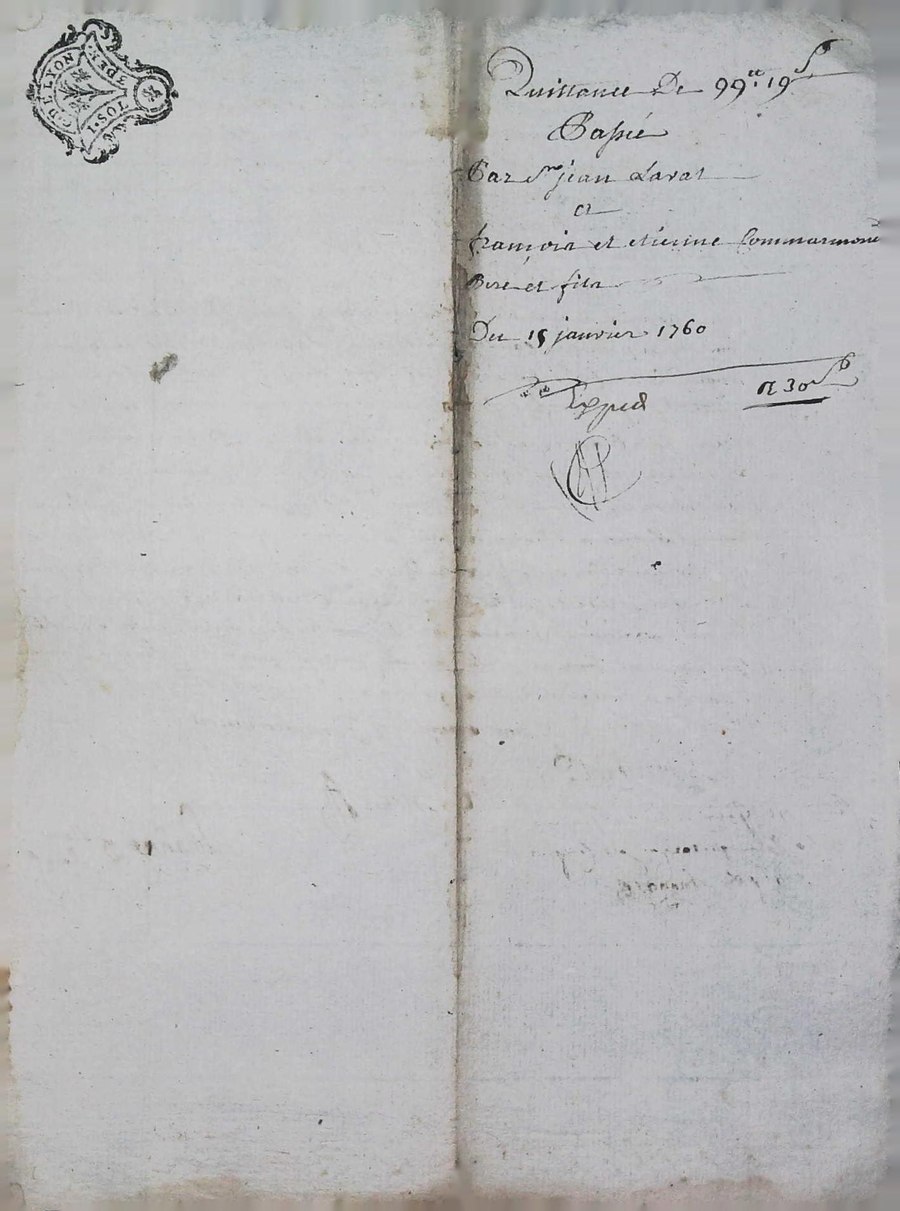 G. DE LYON
I. SOL 3 DE R.
Quittance De 99ᵗᵗ 19ˢ
Passée
Par Sʳ jean Lavat
et
françois et etienne Commarmond
Pere et fils
Du 15 janvier 1760
Expned
R 30ˢ